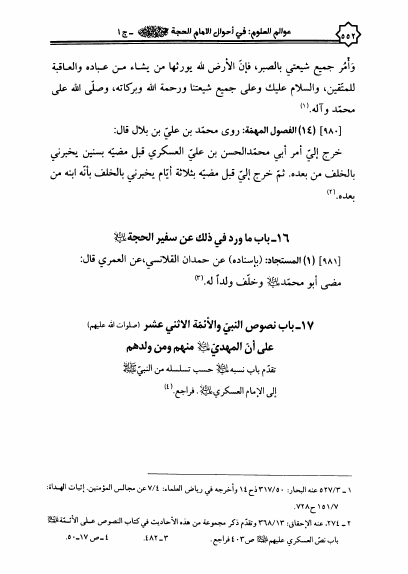 ٥٥٢ عوالم العلوم: في أحوال الامام الحجة ـ ج١
وَأْمُر جميع شيعتي بالصبر، فإنّ الأرض لله يورثها من يشاء مـن عبـاده والعـاقبة
للمتّقين، والسلام عليك وعلى جميع شيعتنا ورحمة الله وبركاته، وصلّى الله على
محمّد وآله.(١)
[٩٨٠] (١٤) الفصول المهمّة: روى محمّد بن عليّ بن بلال قال:
خرج إليّ أمر أبي محمّد الحسن بن عليّ العسكري قبل مضيّه بسنين يخبرني
بالخلف من بعده. ثمّ خرج إليّ قبل مضيّه بثلاثة أيّام يخبرني بالخلف بأنّه ابنه من
بعده.(٢)
١٦ـ باب ما ورد في ذلك عن سفير الحجة ﷺ
[٩٨١] (١) المستجاد: (بإسناده) عن حمدان القلانسي، عن العمري قال:
مضى أبو محمّد وخلّف ولداً له.(٣)
١٧ـ باب نصوص النبيّ والأئمّة الاثني عشر (صلوات الله عليهم)
على أنّ المهديّ منهم ومن ولدهم
تقدّم باب نسبه حسب تسلسله من النبيّ
إلى الإمام العسكري. فراجع.(٤)
١ ـ ٥٢٧/٣ عنه البحار: ٣١٧/٥٠ ذح١٤ وأخرجه في رياض العلماء: ٧/٤ عن مجالس المؤمنين. إثبات الهداة:
١٥١/٧ ح٧٢٨.
٢ ـ ٢٧٤. عنه الإحقاق: ٣٦٨/١٣ وتقدّم ذكر مجموعة من هذه الأحاديث في كتاب النصوص عـلى الأئـمّة
باب نصّ العسكري عليهم ص٤٠٣ فراجع. ٣ ـ ٤٨٢. ٤ ـ ص ١٧ ـ ٥٠.